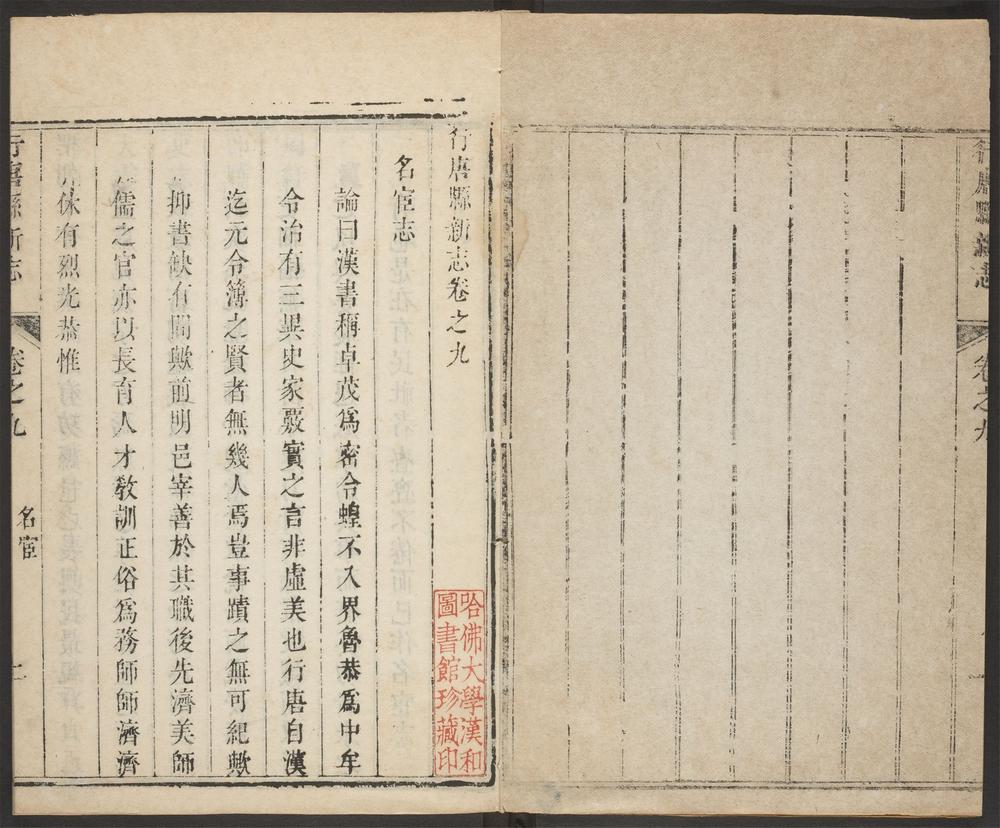 行唐縣新志
卷之九
行唐縣新志卷之九
哈佛大學漢和
圖書館珍藏印
名宦志
論曰漢書稱卓茂爲密令蝗不入界魯恭爲中牟
令治有三異史家覈實之言非虛美也行唐自漢
迄元令簿之賢者無幾人焉豈事蹟之無可紀歟
抑書缺有間歟前明邑宰善於其職後先濟美師
儒之官亦以長育人才敎訓正俗爲務師師濟濟
休有烈光恭惟
行唐縣新志
卷之九
名宦
一